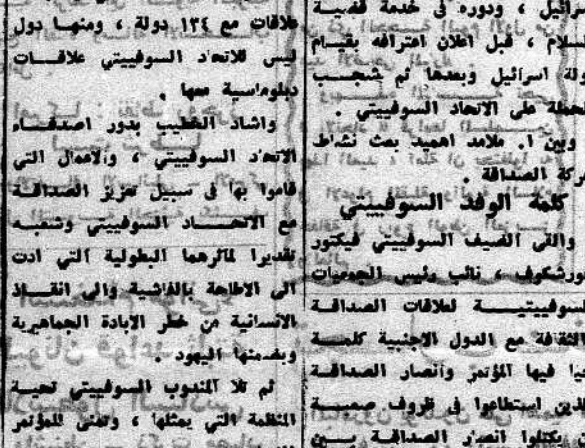 سرائيل ، ودوره في خدمة قضية
السلام ، قبل اعلان اعترافه بقيام
ولة اسرائيل وبعدها ثم شجب
حملة على الاتحاد السوفييتي .
وبين ا. ملامد اهمية بعث نشاط
ركة الصداقة .
كلمة الوفد السوفييتي
والقى الضيف السوفييتي فيكتور
ورشكوف ، نائب رئيس الجمعيات
لسوفييتيـة لعلاقات الصداقة
الثقافة مع الدول الاجنبية كلمـة
حيا فيها المؤتمر وأنصار الصداقة
لذين استطاعوا في ظروف صعبـة
يكتلوا أنصار الصداقة بين
علاقات مع ١٣٤ دولة ، ومنها دول
ليس للاتحاد السوفييتي علاقات
دبلوماسية معها .
واشاد الخطيب بدور اصدقاء
الاتحاد السوفييتي ، والاعمال التي
قاموا بها في سبيل تعزيز الصداقة
مع الاتحـاد السوفييتي وشعبـه
تقديرا لمآثرهما البطولية التي أدت
الى الاطاحة بالفاشية والى انقـاذ
الانسانية من خطر الابادة الجماهيرية
وبضمنها اليهود .
ثم تلا المندوب السوفييتي تحيـة
المنظمة التي يمثلها ، وتمنى للمؤتمر